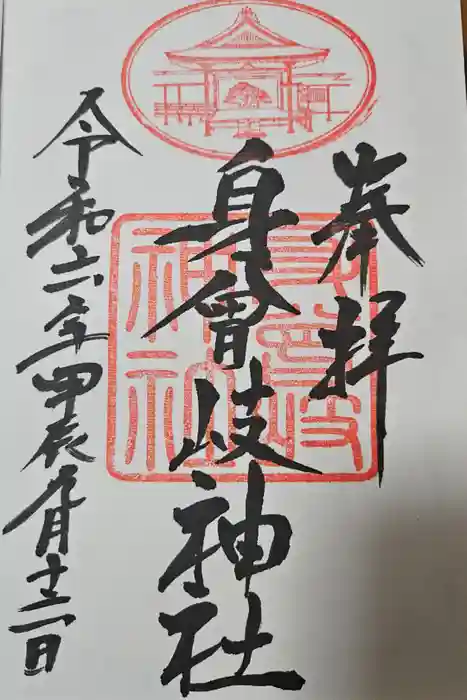 奉拝
身曾岐神社
令和六年甲辰九月十二日
身曾岐
神社